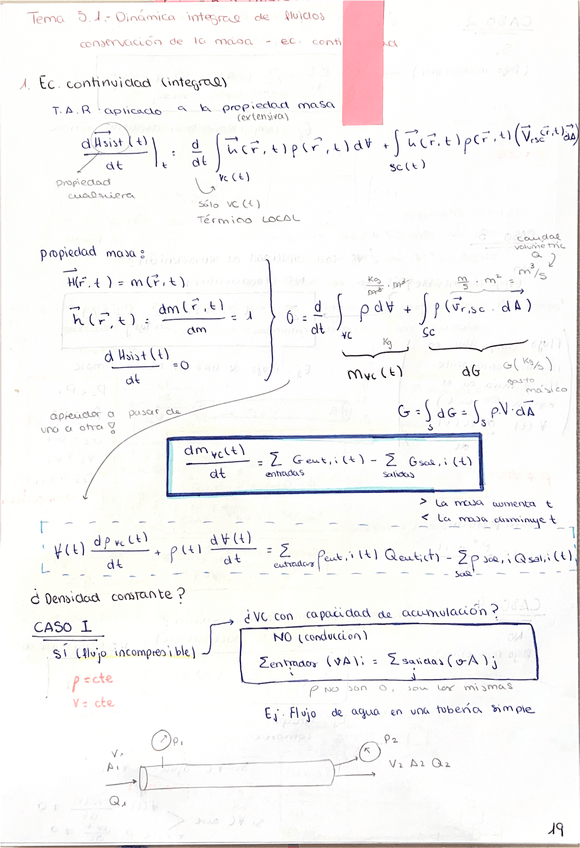 Tema 5.1: Dinámica integral de fluidos
conservación de la masa - ec. conti dad
1. Ec. continuidad (integral)
T.A.R aplicado a la propiedad masa
(extensiva)
dH⃗sist(t)/dt |t = d/dt ∫VC(t) h⃗(r⃗,t) ρ(r⃗,t) dV + ∫SC(t) h⃗(r⃗,t) ρ(r⃗,t) (V⃗rsc(r⃗,t) dA⃗)
Propiedad cualquiera
Sólo VC(t)
Término LOCAL
Propiedad masa:
H⃗(r⃗,t) = m(r⃗,t)
h⃗(r⃗,t) = dm(r⃗,t)/dm = 1
d Hsist(t)/dt = 0
0 = d/dt ∫VC ρ dV + ∫SC ρ(v⃗r,sc · dA⃗)
caudal volumétric Q
kg/m³ · m³
m/s · m² = m³/s
kg
mVC(t)
dG
G(kg/s)
gasto másico
G = ∫S dG = ∫S ρ·V·dA⃗
aprender a pasar de
una a otra!
dmVC(t)/dt = Σentradas Gent,i(t) - Σsalidas Gsal,i(t)
> La masa aumenta t
< La masa disminuye t
V(t) dρVC(t)/dt + ρ(t) dV(t)/dt = Σentradas ρent,i(t) Qent,i(t) - Σsal ρsal,i Qsal,i(t)
¿Densidad constante?
CASO I
SÍ (flujo incompresible)
ρ = cte
V = cte
¿VC con capacidad de acumulación?
NO (conducción)
Σentradas i (vA)i = Σsalidas j (vA)j
ρ NO son 0, son las mismas
Ej. Flujo de agua en una tubería simple
V₁
A₁
Q₁
P₁
P₂
V₂ A₂ Q₂
19